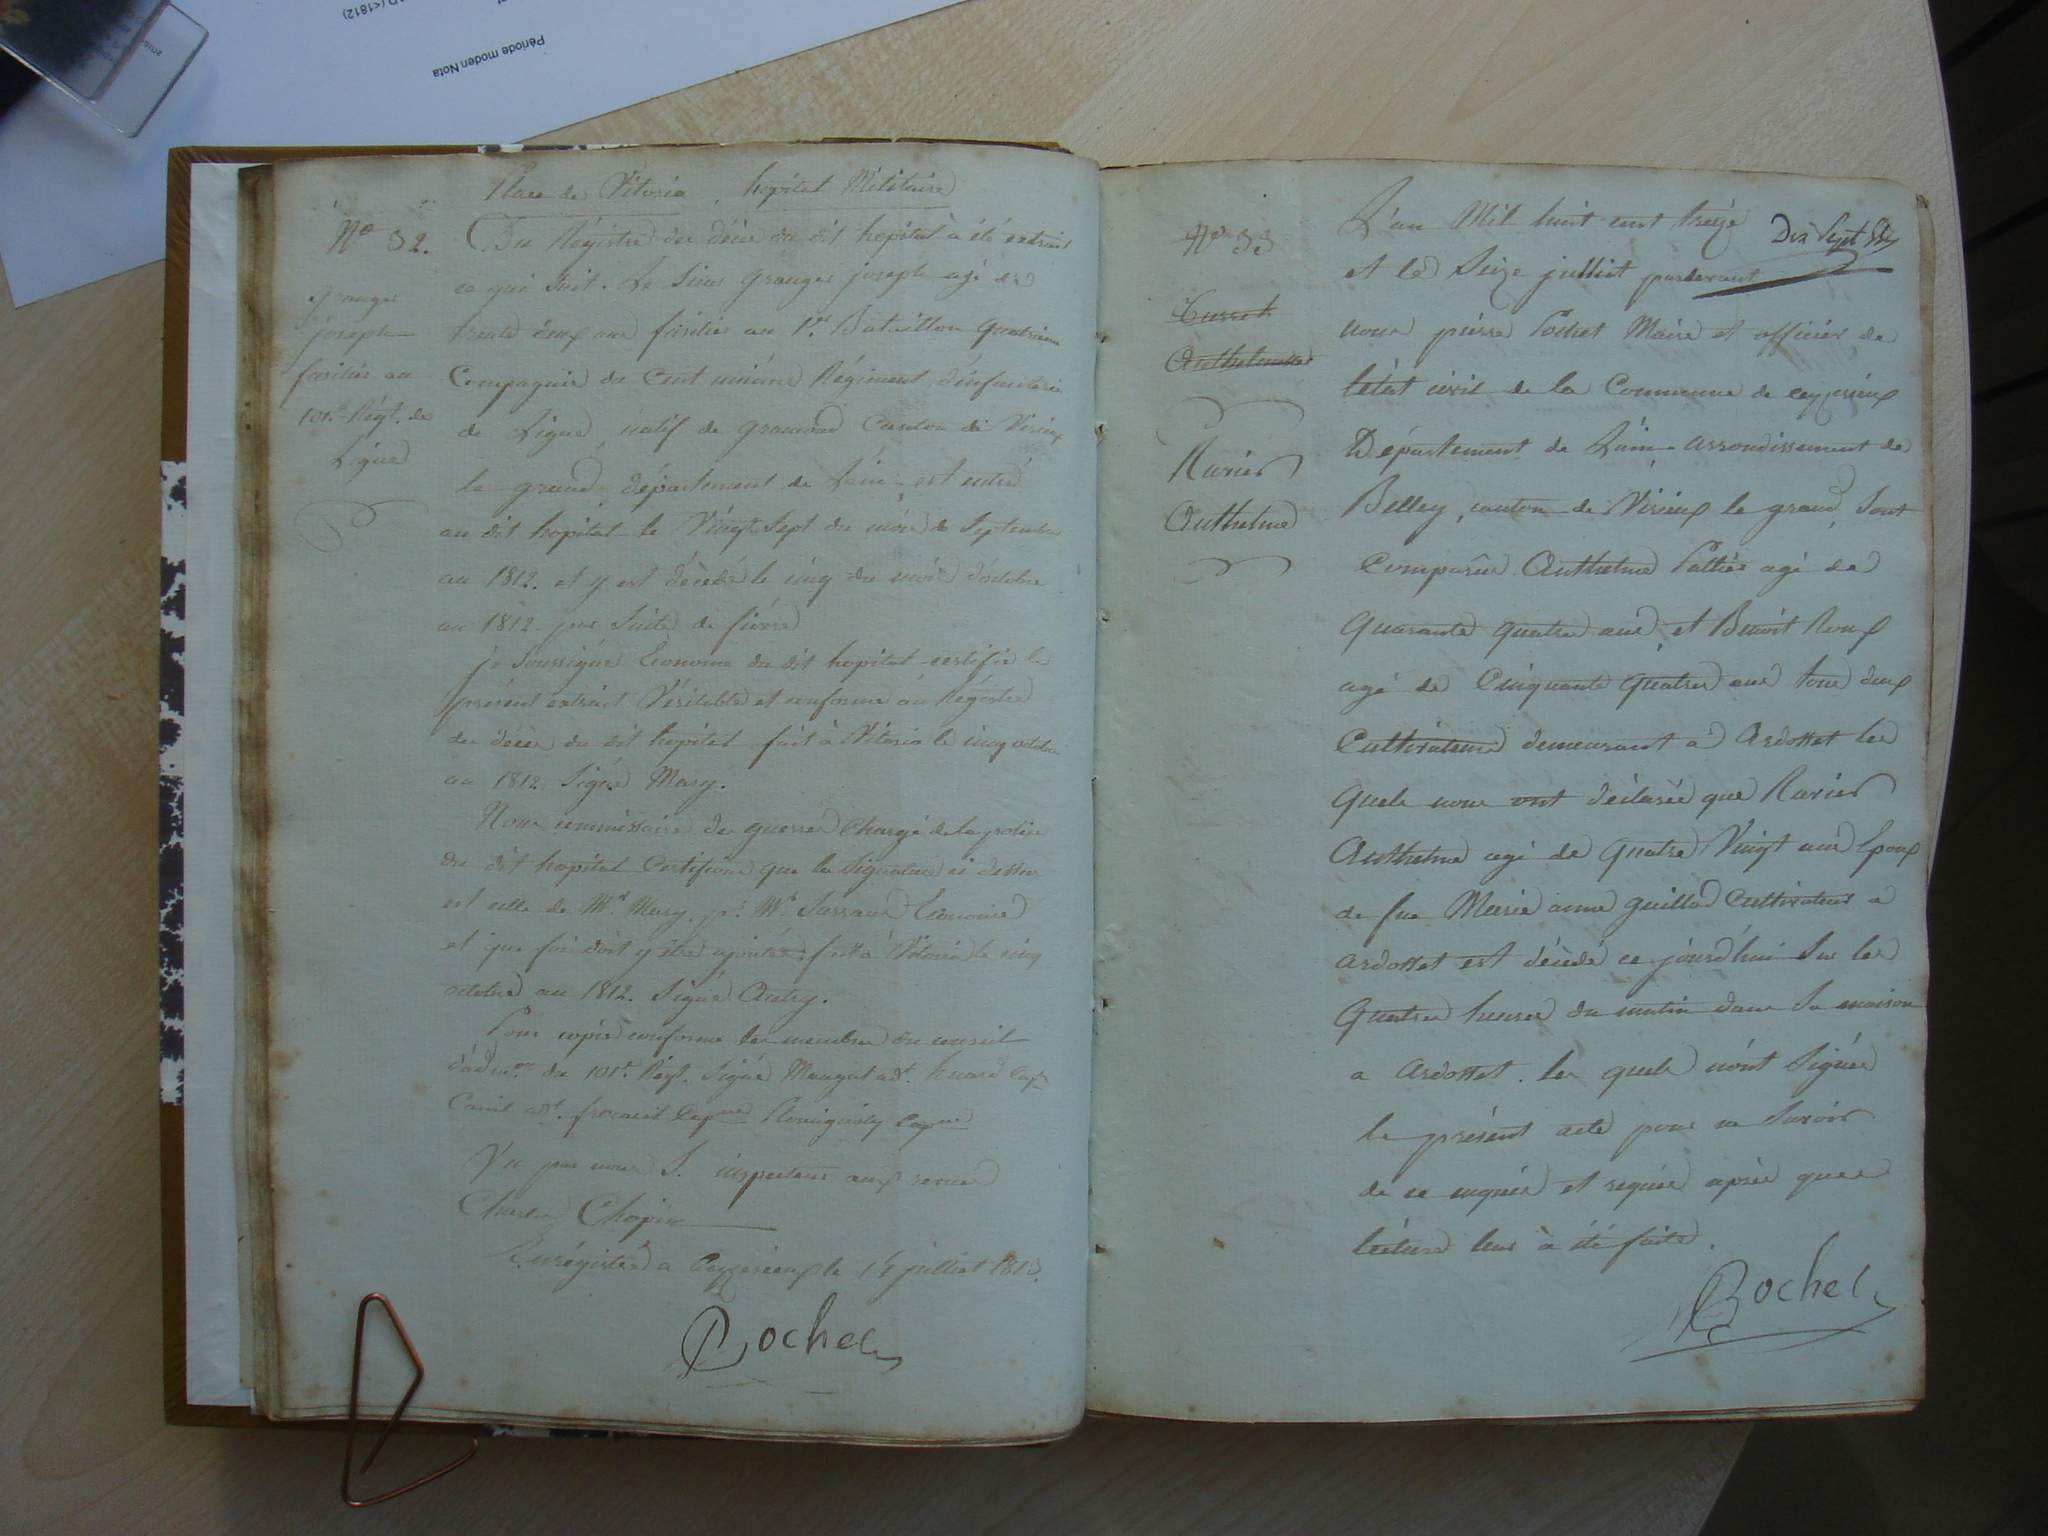 Période moden Nota
Place de Vitoria, hopital Militaire
N° 32.
Granger
joseph
fusilier au
101e Régt. de
Ligne
Du Régistre des décès du dit hopital à été extrait
ce qui suit. Le Sieur Granger joseph agé de
trente deux ans fusilier au 1er Bataillon quatrieme
Compagnie du Cent unième Régiment d'infanterie
de Ligne, natif de gramond Canton de Virieux
le grand, département de L'ain, est entré
au dit hopital le Vingt Sept du mois de Septembre
an 1812. et y est décédé le cinq du mois d'octobre
an 1812. par Suite de fièvre
je Soussigné Econome du dit hopital certifie le
présent extrait Véritable et conforme au Régistre
des décès du dit hopital fait à Vitoria le cinq octobre
an 1812 Signé Mary.
Nous commissaire des guerres Chargé de la police
du dit hopital Certifions que la Signature ci dessus
est celle de Mr Mary, pr. Mr Sarraux Econome
et que foi doit y être ajoutée fait à Vitoria le cinq
octobre an 1812. Signé Autry.
Pour copie conforme les membres du conseil
d'adm.on du 101e Régt. Signé
Vu par nous S. inspecteur aux revues
Charles Chopin
Enrégistré a Ceyzerieux le 15 julliet 1813.
Pochet
N° 33
Curset
Anthelme
Ravier
Anthelme
L'an Mil huit cent treize
Dix Sept
et le Seize julliet pardevant
nous pierre Pochet Maire et officier de
létat civil de la Commune de ceyzerieux
Département de L'ain arrondissement de
Belley, canton de Virieux le grand, Sont
Comparus Anthelme Pathie agé de
Quarante quatre ans, et Benoit Roux
agé de Cinquante Quatre ans tous deux
Cultivateurs demeurant à Ardosset les
Quels nous ont déclarée que Ravier
Anthelme agé de Quatre Vingt ans Epoux
de fue Marie anne guillod Cultivateur a
ardosset est décédé ce jourd'hui Sur les
Quatres heures du matin dans Sa maison
a Ardosset. les quels n'ont Signée
le présent acte pour ne Savoir
de ce enquis et requis après que
lécture leur à été faite.
Pochet